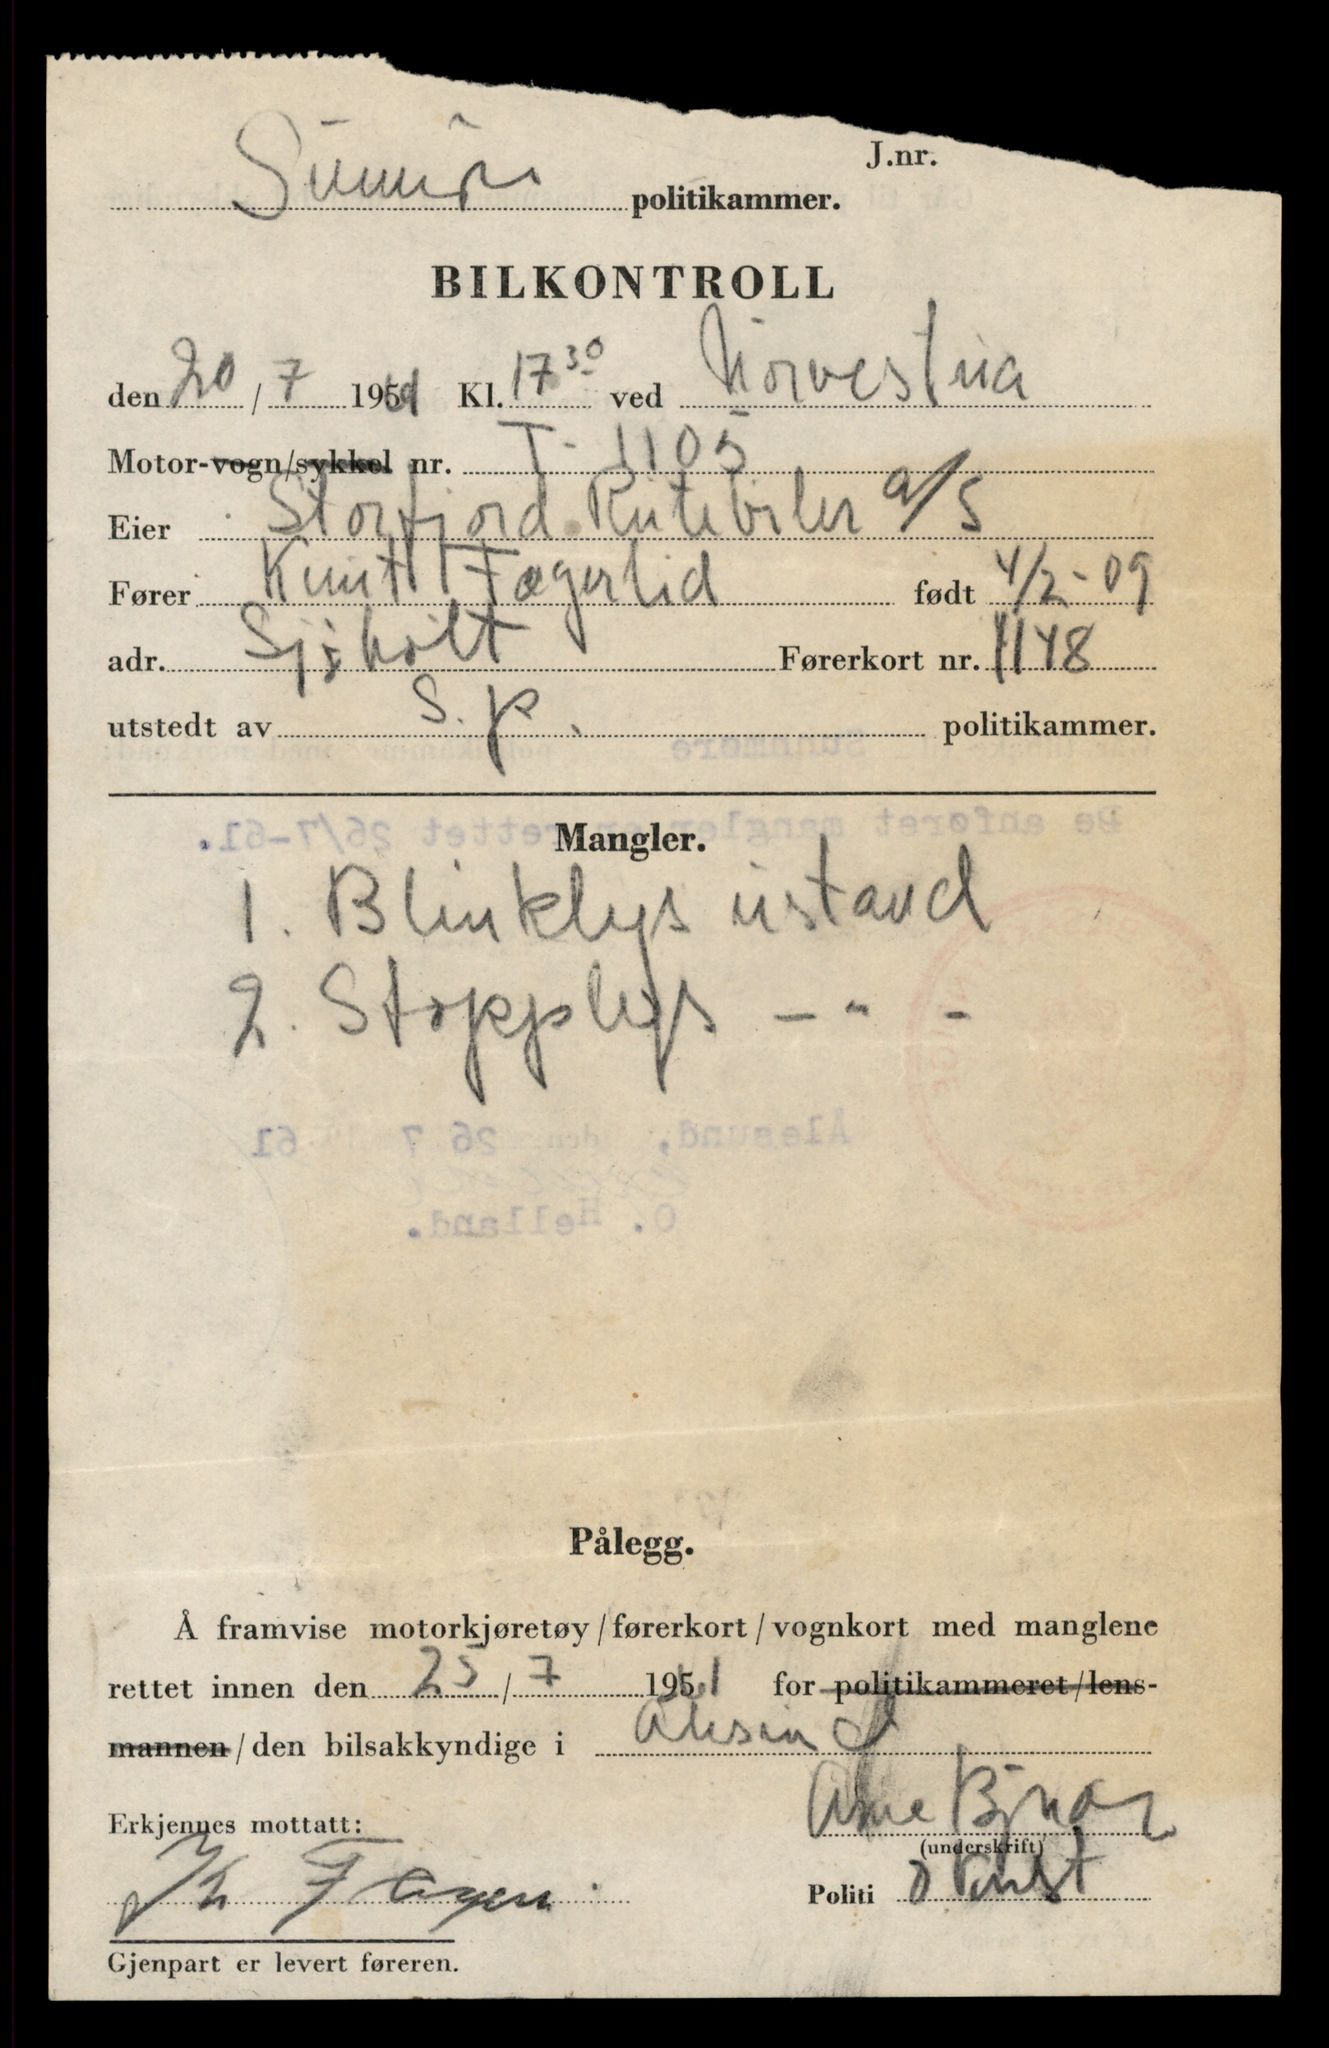 J.nr.
Sunnmøre politikammer.
BILKONTROLL
den 20/7 1961 Kl. 17³⁰ ved Norvestua
Motor-vogn/sykkel nr. T-1105
Eier Storfjord Rutebiler a/s
Fører Knut Fagerlid født 4/2-09
adr. Sjøholt Førerkort nr. 1148
utstedt av S.p. politikammer.
De anførte mangler er rettet 26/7-61.
Mangler.
1. Blinklys ustand
2. Stopplys -"-
Ålesund, den 26 7 61
O. Helland.
Pålegg.
Å framvise motorkjøretøy/førerkort/vognkort med manglene
rettet innen den 25/7 1961 for politikammeret/lens-
mannen/den bilsakkyndige i Ålesund
Arne Bjnar
Erkjennes mottatt:
(underskrift)
Politi
Gjenpart er levert føreren.